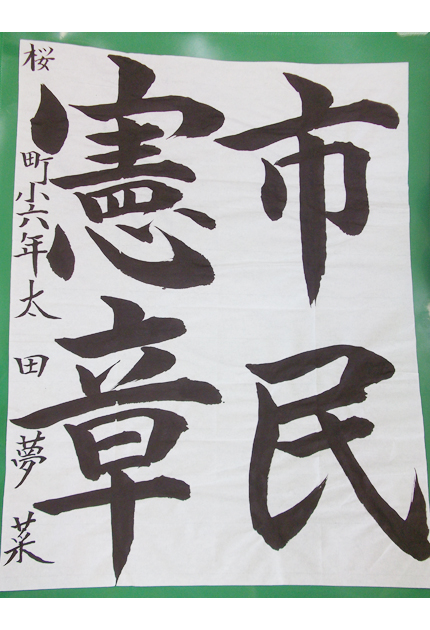 市民
憲章
桜町小六年太田夢菜